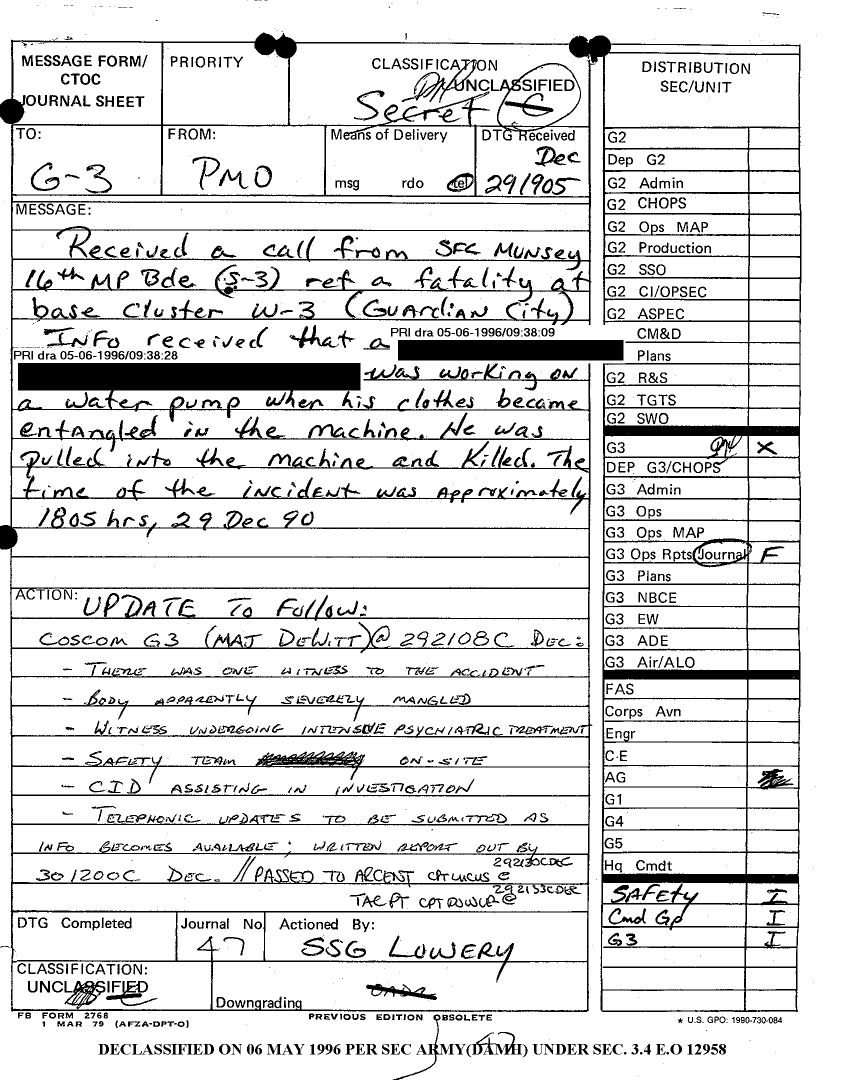 MESSAGE FORM/
CTOC
JOURNAL SHEET
PRIORITY
CLASSIFICATION
UNCLASSIFIED
Secret
C
TO:
G-3
FROM:
PMO
Means of Delivery
msg rdo tel
DTG Received
Dec
291905
MESSAGE:
Received a call from SFC MUNSEY
16th MP Bde (S-3) ref a fatality at
base cluster W-3 (Guardian City)
INFO received that a
PRI dra 05-06-1996/09:38:09
PRI dra 05-06-1996/09:38:28
was working on
a water pump when his clothes became
entangled in the machine. He was
pulled into the machine and killed. The
time of the incident was approximately
1805 hrs, 29 Dec 90
ACTION: UPDATE To Follow:
COSCOM G3 (MAJ DEWITT) @ 292108C DEC:
- THERE WAS ONE WITNESS TO THE ACCIDENT
- BODY APPARENTLY SEVERELY MANGLED
- WITNESS UNDERGOING INTENSIVE PSYCHIATRIC TREATMENT
- SAFETY TEAM ON-SITE
- CID ASSISTING IN INVESTIGATION
- TELEPHONIC UPDATES TO BE SUBMITTED AS
INFO BECOMES AVAILABLE; WRITTEN REPORT OUT BY
301200C DEC. // PASSED TO ARCENT CPT LUCUS @ 292130CDEC
TAC PT CPT @ 292153CDEC
DTG Completed
Journal No.
47
Actioned By:
SSG LOWERY
CLASSIFICATION:
UNCLASSIFIED
Downgrading
OADR
FB FORM 2768
1 MAR 79 (AFZA-DPT-O)
PREVIOUS EDITION OBSOLETE
DISTRIBUTION
SEC/UNIT
G2
Dep G2
G2 Admin
G2 CHOPS
G2 Ops MAP
G2 Production
G2 SSO
G2 CI/OPSEC
G2 ASPEC
CM&D
Plans
G2 R&S
G2 TGTS
G2 SWO
G3 X
DEP G3/CHOPS
G3 Admin
G3 Ops
G3 Ops MAP
G3 Ops Rpts Journal F
G3 Plans
G3 NBCE
G3 EW
G3 ADE
G3 Air/ALO
FAS
Corps Avn
Engr
C-E
AG
G1
G4
G5
Hq Cmdt
SAFETY I
Cmd Gp I
G3 I
* U.S. GPO: 1990-730-084
47
DECLASSIFIED ON 06 MAY 1996 PER SEC ARMY(DAMH) UNDER SEC. 3.4 E.O 12958